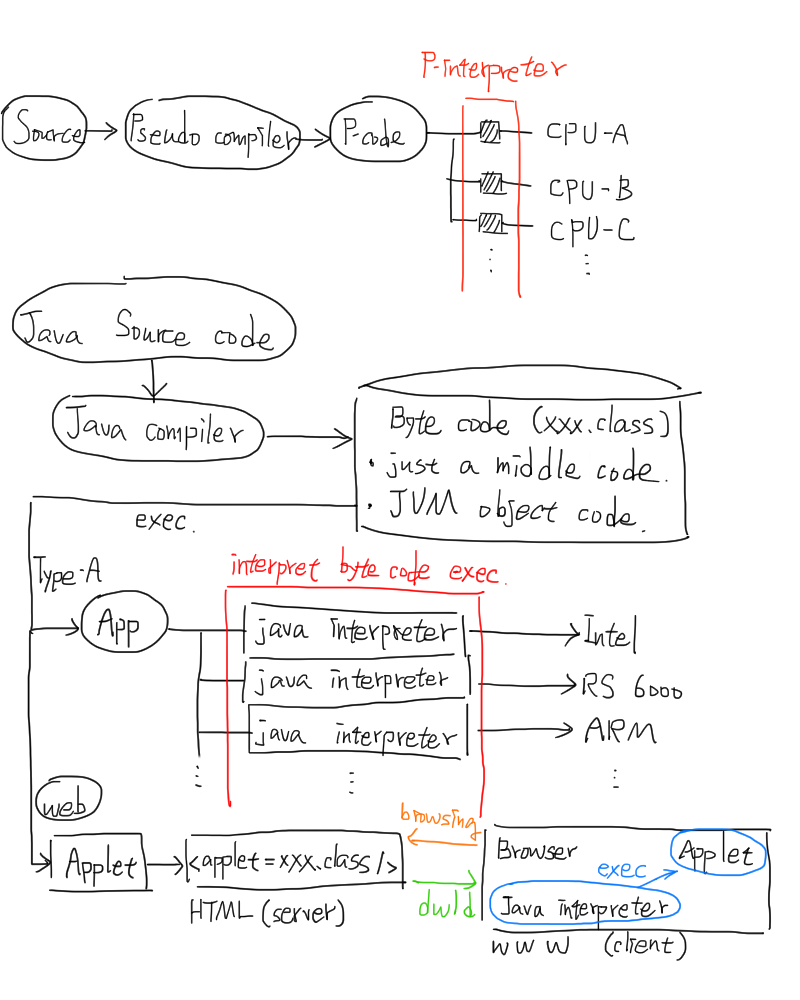 P-interpreter
Source
Pseudo compiler
P-code
CPU-A
CPU-B
CPU-C
Java Source code
Java compiler
Byte code (xxx.class)
· just a middle code.
· JVM object code.
exec.
Type-A
App
interpret byte code exec.
java interpreter
Intel
java interpreter
RS 6000
java interpreter
ARM
web
Applet
<applet=xxx.class/>
HTML (server)
browsing
dwld
Browser
Applet
exec
Java interpreter
www (client)